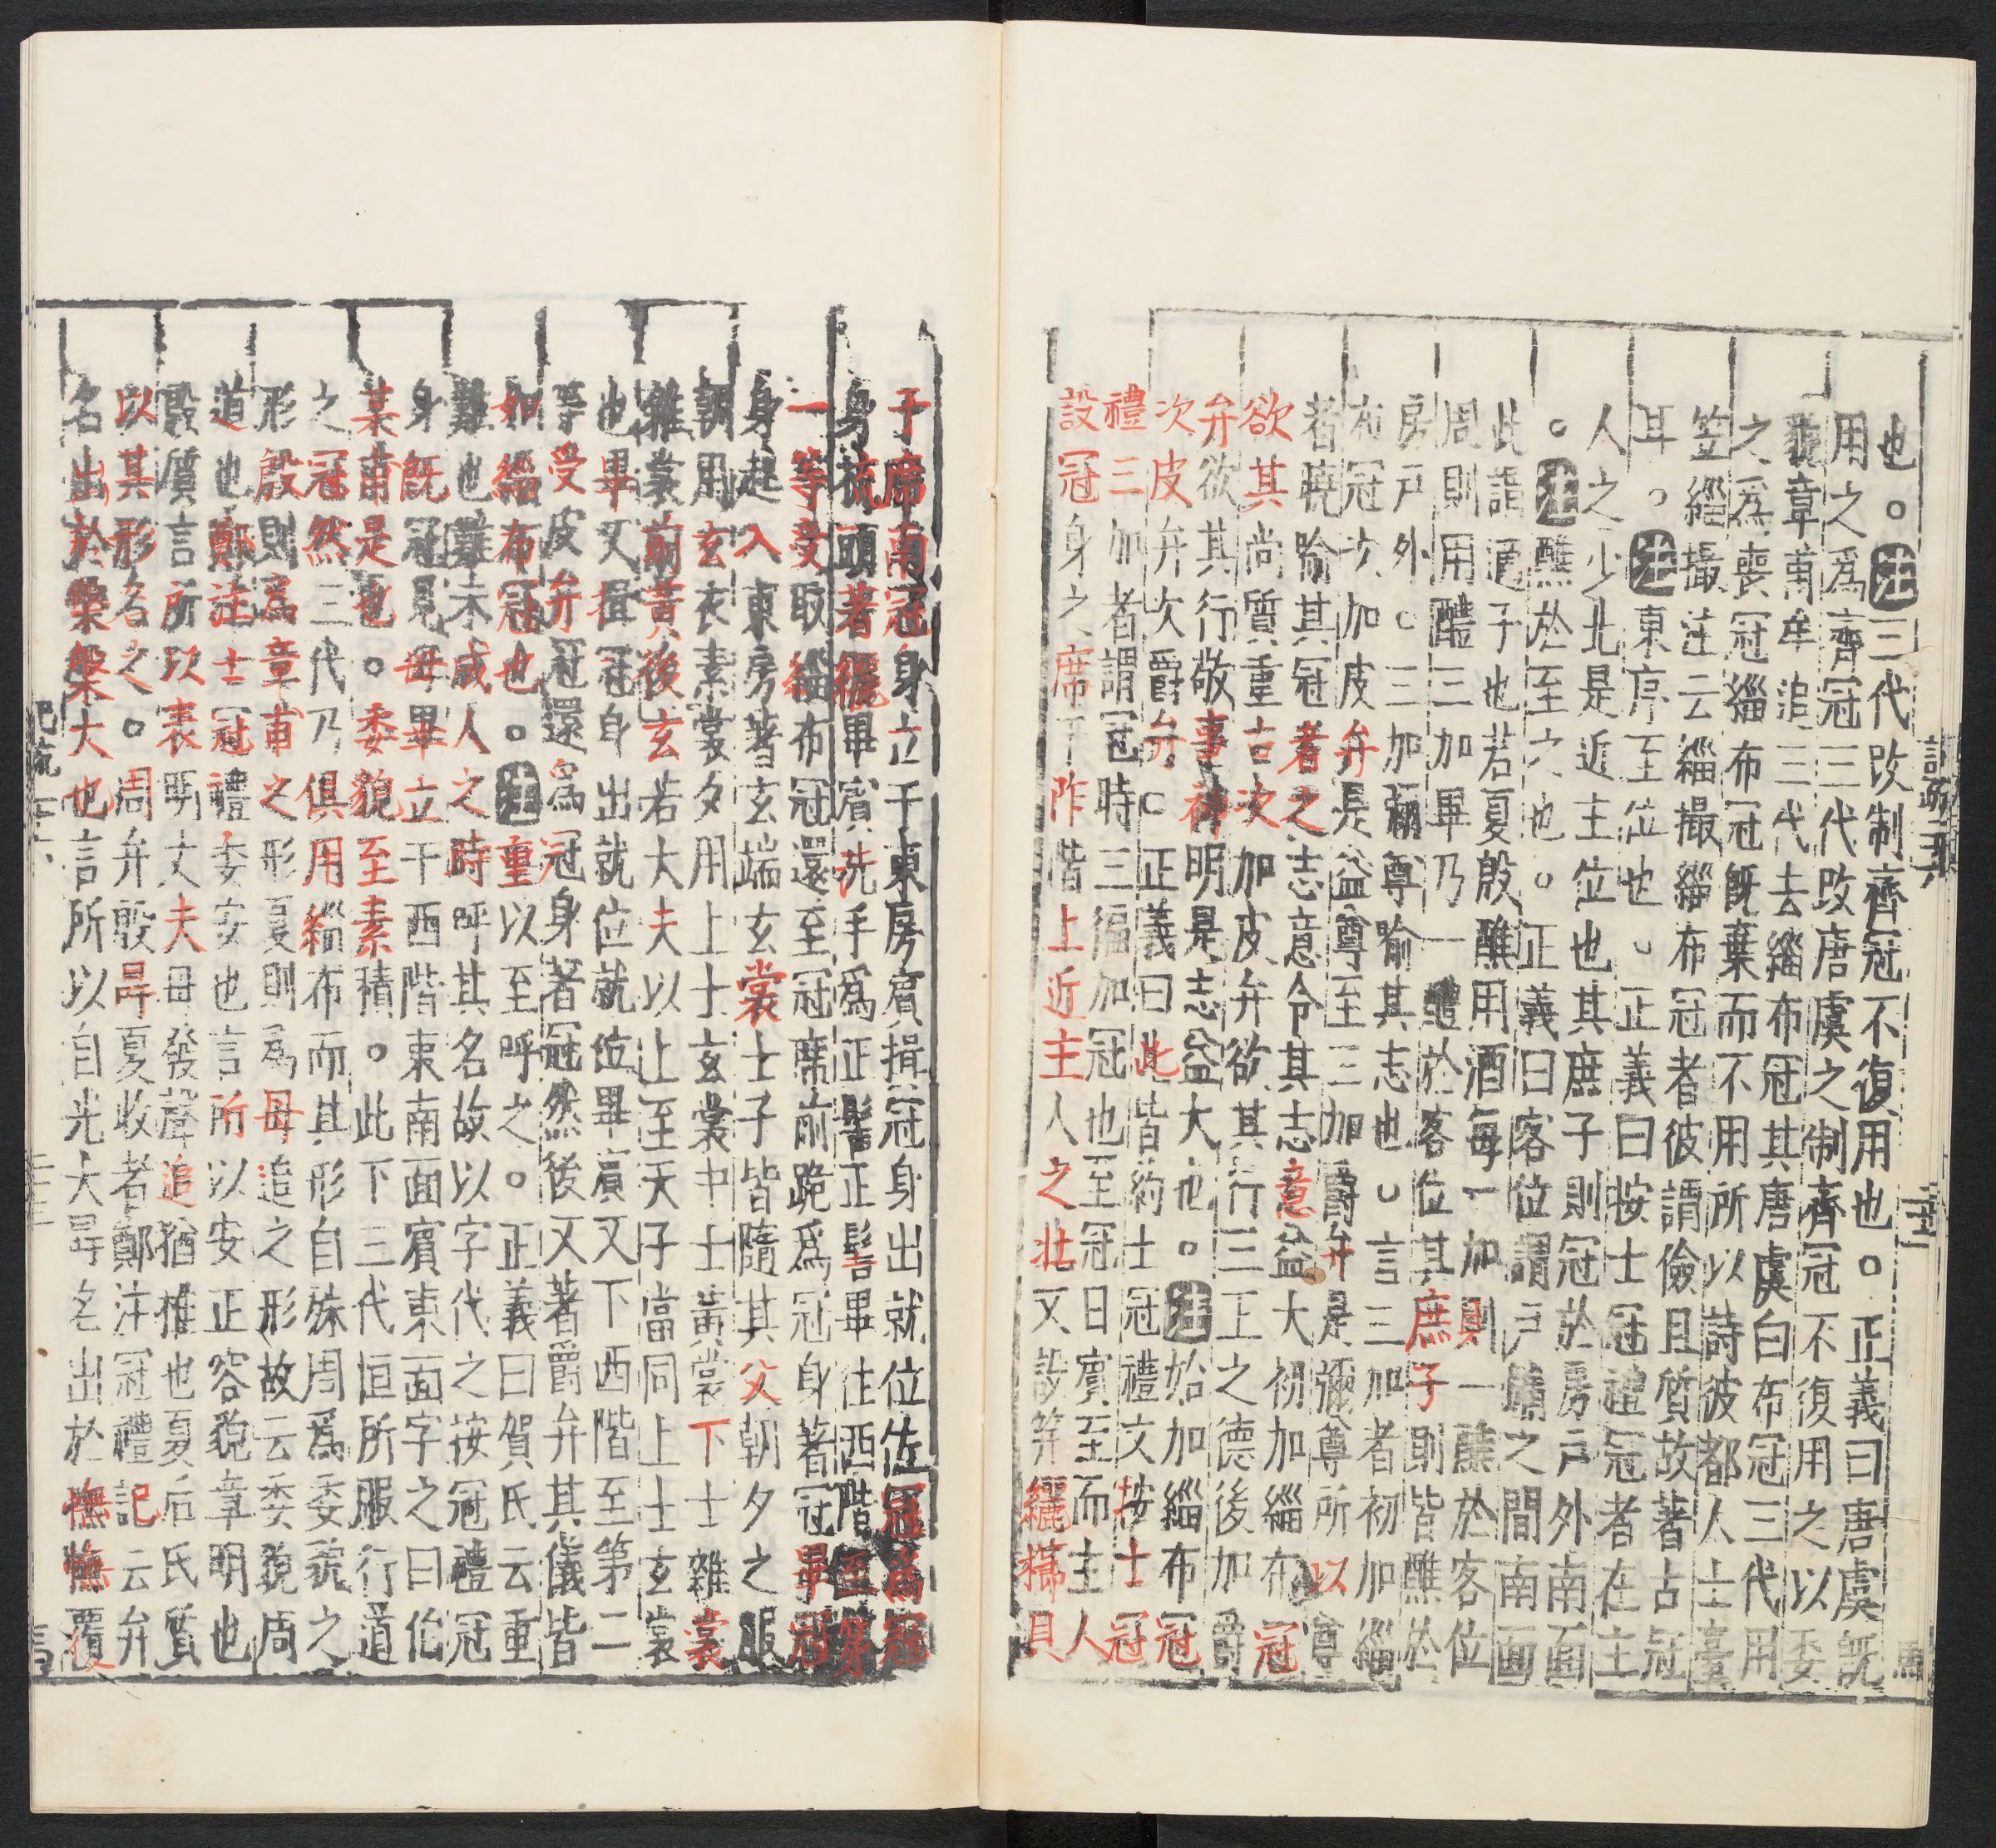 也。注三代改制齊冠不復用也。正義曰唐虞既
用之爲齊冠三代改唐虞之制齊冠不復用之以委
貌章甫牟追三代去緇布冠其唐虞白布冠三代用
之爲喪冠緇布冠既棄而不用所以詩彼都人士臺
笠緇撮注云緇撮緇布冠者彼謂儉且質故著古冠
耳。注東序至位也。正義曰按士冠禮冠者在主
人之少北是近主位也其庶子則冠於房戶外南面
。注醮於至之也。正義曰客位謂戶牖之間南面
此謂適子也若夏殷醮用酒每一加則一醮於客位
周則用醴三加畢乃一醴於客位其庶子則皆醮於
房戶外。三加彌尊喻其志也。言三加者初加緇
布冠次加皮弁是益尊至三加爵弁是彌尊所以尊
者曉喻其冠者之志意令其志意益大初加緇布冠
欲其尚質重古次加皮弁欲其行三王之德後加爵
弁欲其行敬事神明是志益大也。注始加緇布冠
次皮弁次爵弁。正義曰此皆約士冠禮文按士冠
禮三加者謂冠時三徧加冠也至冠日賓至而主人
設冠身之席于阼階上近主人之北又設笄纚櫛具
于席南冠身立于東房賓揖冠身出就位佐冠爲冠
身梳頭著纚畢賓洗手爲正髻正髻畢往西階至第
一等受取緇布冠還至冠席前跪爲冠身著冠畢冠
身起入東房著玄端玄裳士子皆隨其父朝夕之服
朝用玄衣素裳夕用上士玄裳中士黃裳下士雜裳
雜裳前黃後玄若大夫以上至天子當同上士玄裳
也畢又揖冠身出就位就位畢賓又下西階至第二
等受皮弁冠還爲冠身著冠然後又著爵弁其儀皆
如緇布冠也。注重以至呼之。正義曰賀氏云重
難也難未成人之時呼其名故以字代之按冠禮冠
身既冠見母畢立于西階東南面賓東面字之曰伯
某甫是也。委貌至素積。此下三代恒所服行道
之冠然三代乃俱用緇布而其形自殊周爲委貌之
形殷則爲章甫之形夏則爲毋追之形故云委貌周
道也鄭注士冠禮委安也言所以安正容貌章明也
殷質言所以表明丈夫毋發聲追猶椎也夏后氏質
以其形名之。周弁殷冔夏收者鄭注冠禮記云弁
名出於槃槃大也言所以自光大冔名出於幠幠覆